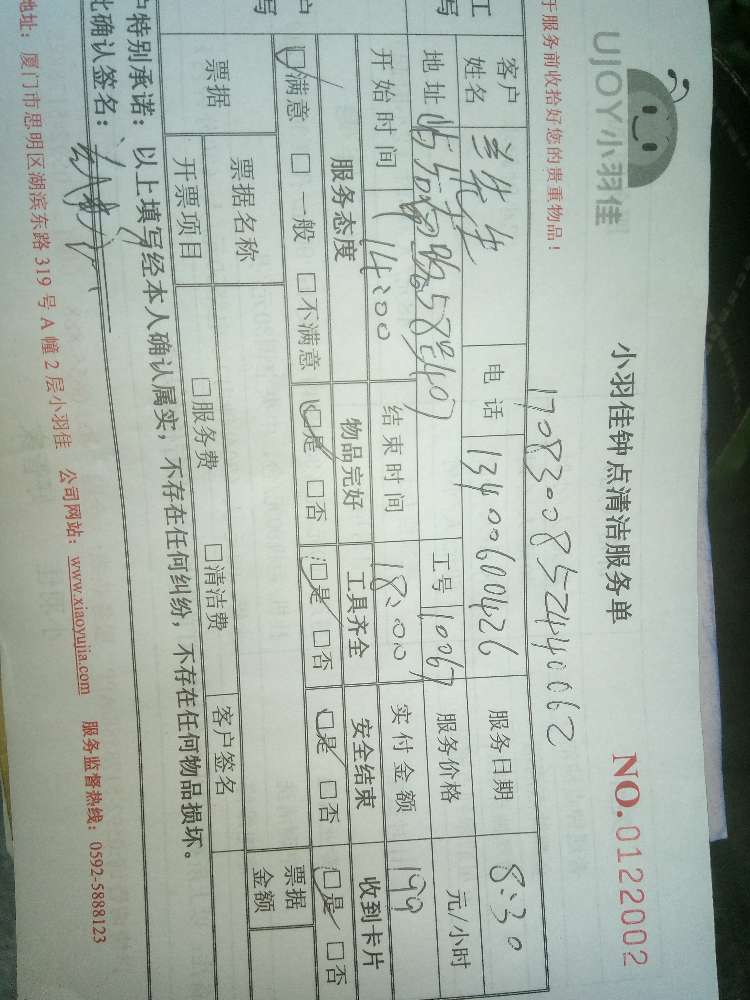 UJOY小羽佳
小羽佳钟点清洁服务单
NO.0122002
于服务前收拾好您的贵重物品！
17083008524440062
客户姓名 兰先生 电话 13400600426 服务日期 8:30
地址 58号401 工号 10067 服务价格 元/小时
开始时间 14:00 结束时间 18:00 实付金额 199
服务态度 物品完好 工具齐全 安全结束 收到卡片
☑满意 □一般 □不满意 ☑是 □否 ☑是 □否 ☑是 □否 ☑是 □否
票据 票据名称 客户签名 票据金额
开票项目 □服务费 □清洁费
户特别承诺：以上填写经本人确认属实，不存在任何纠纷，不存在任何物品损坏。
此确认签名：
地址：厦门市思明区湖滨东路319号A幢2层小羽佳 公司网站：www.xiaoyujia.com 服务监督热线：0592-5888123